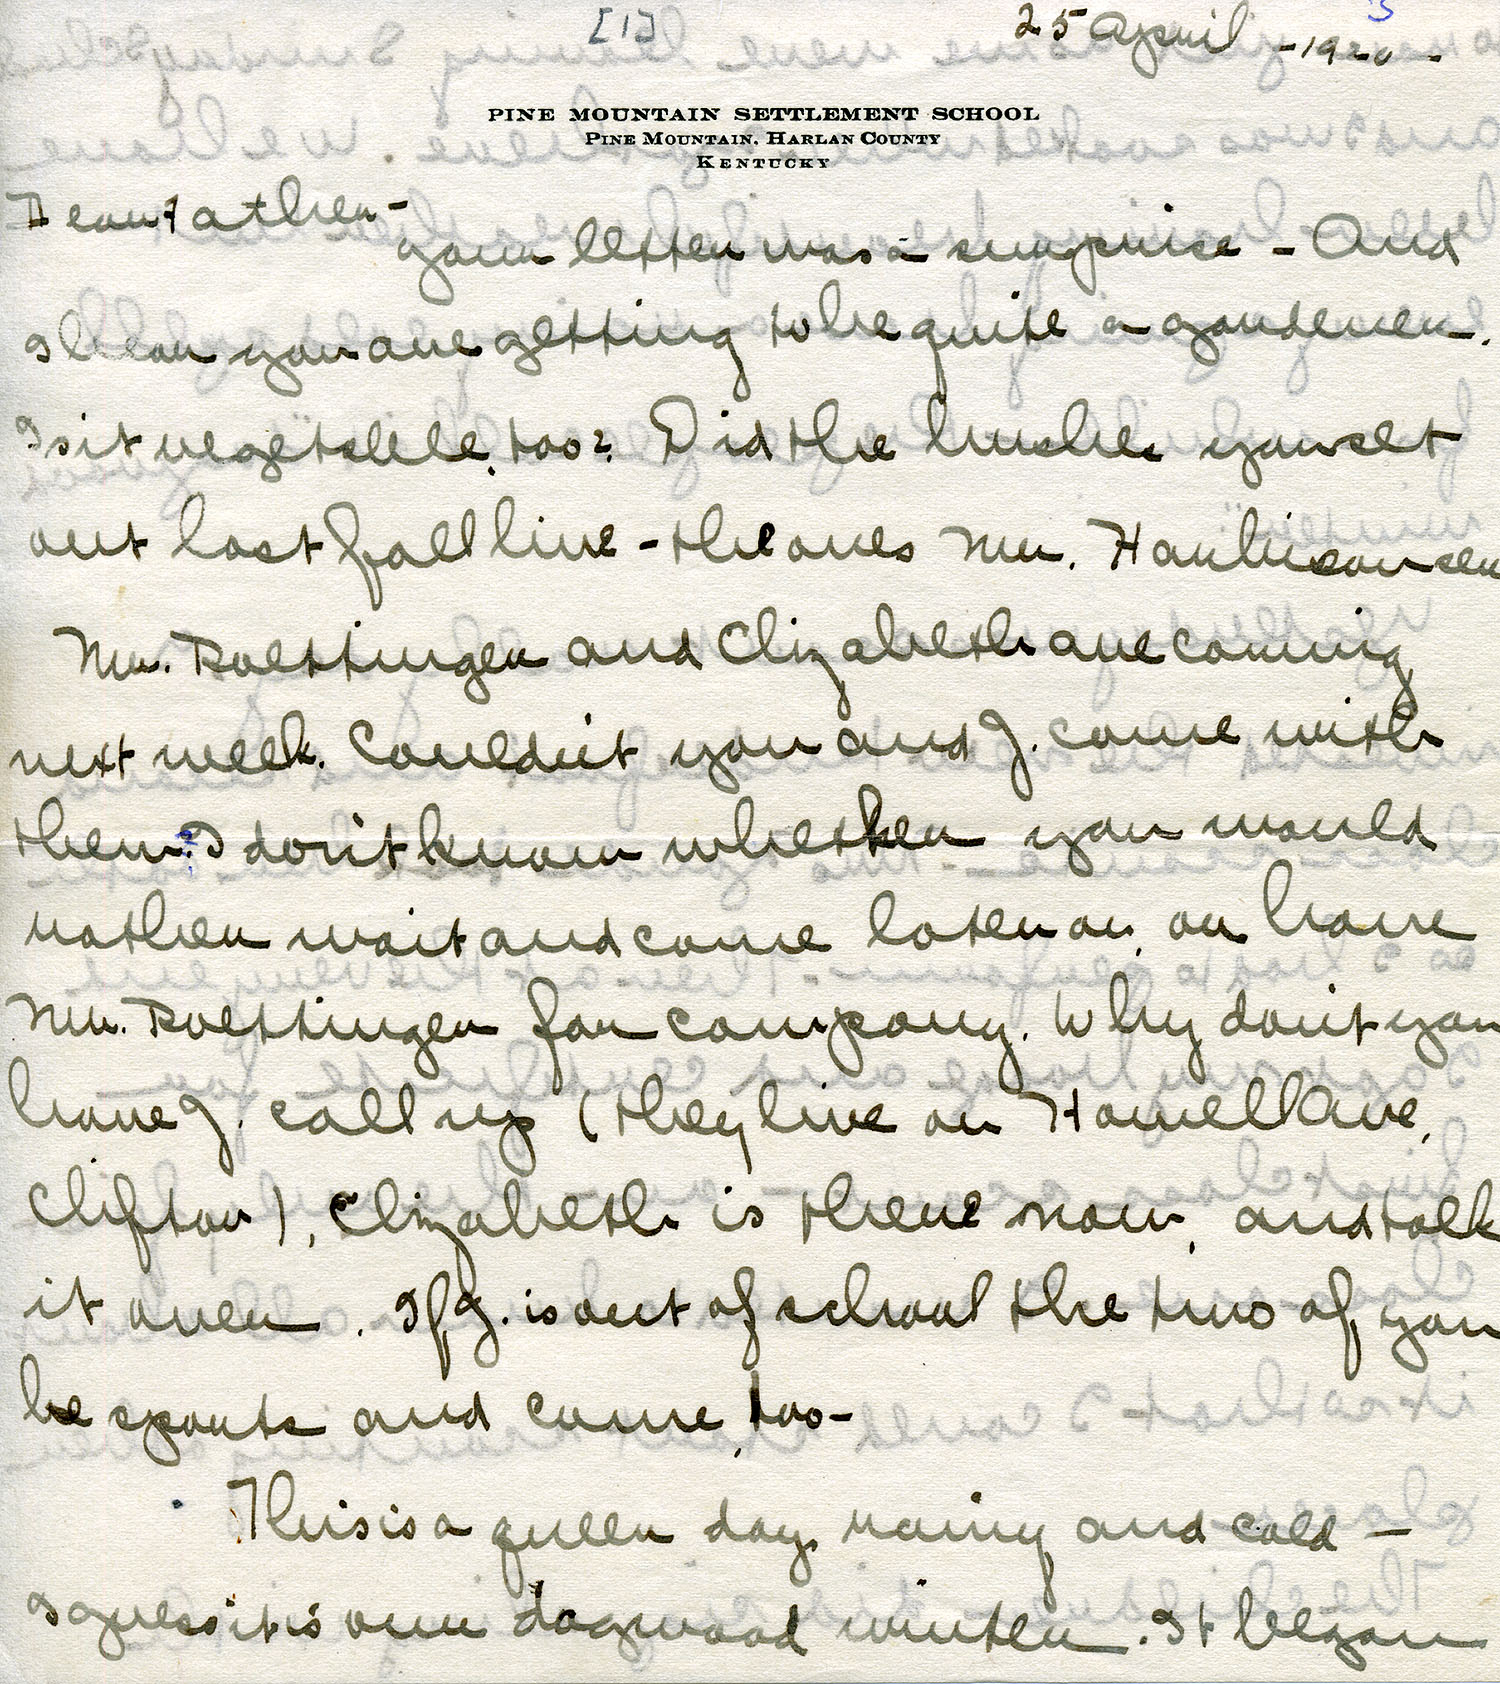 [1]
3
25 April -1920-
PINE MOUNTAIN SETTLEMENT SCHOOL
PINE MOUNTAIN, HARLAN COUNTY
KENTUCKY
Dear Father -
your letter was a surprise - And
I hear you are getting to be quite a gardener.
Is it vegetable, too? Did the bushes you set
out last fall live - the ones Mr. Harbison sen
Mr. Roettinger and Elizabeth are coming
next week. Couldn't you and J. come with
them? I don't know whether you would
rather wait and come later on, or have
Mr. Roettinger for company. Why don't you
have J. call up (they live on Howell Ave,
Clifton), Elizabeth is there now, and talk
it over. If J. is out of school the two of you
be sports and come, too -
This is a queer day, rainy and cold -
I guess it's our dogwood winter. It began